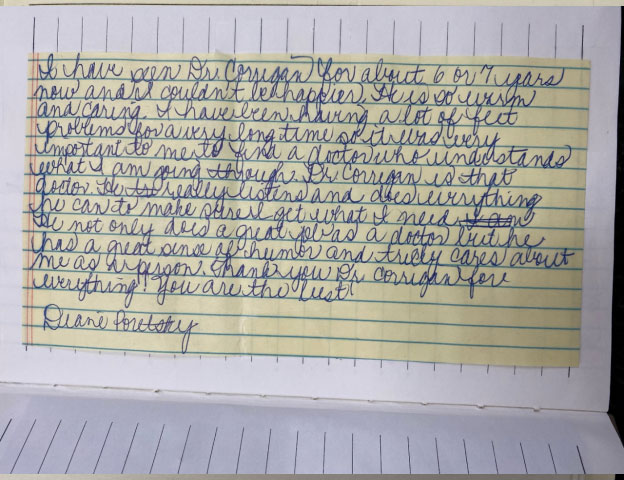 I have seen Dr. Corrigan for about 6 or 7 years
now and I couldn't be happier. He is so warm
and caring. I have been having a lot of feet
problems for a very long time so it was very
important to me to find a doctor who understands
what I am going through. Dr. Corrigan is that
doctor. He really listens and does everything
he can to make sure I get what I need. I am
He not only does a great job as a doctor but he
has a great sense of humor and truly cares about
me as a person. Thank you Dr. Corrigan fore
everything! You are the best!
Deane